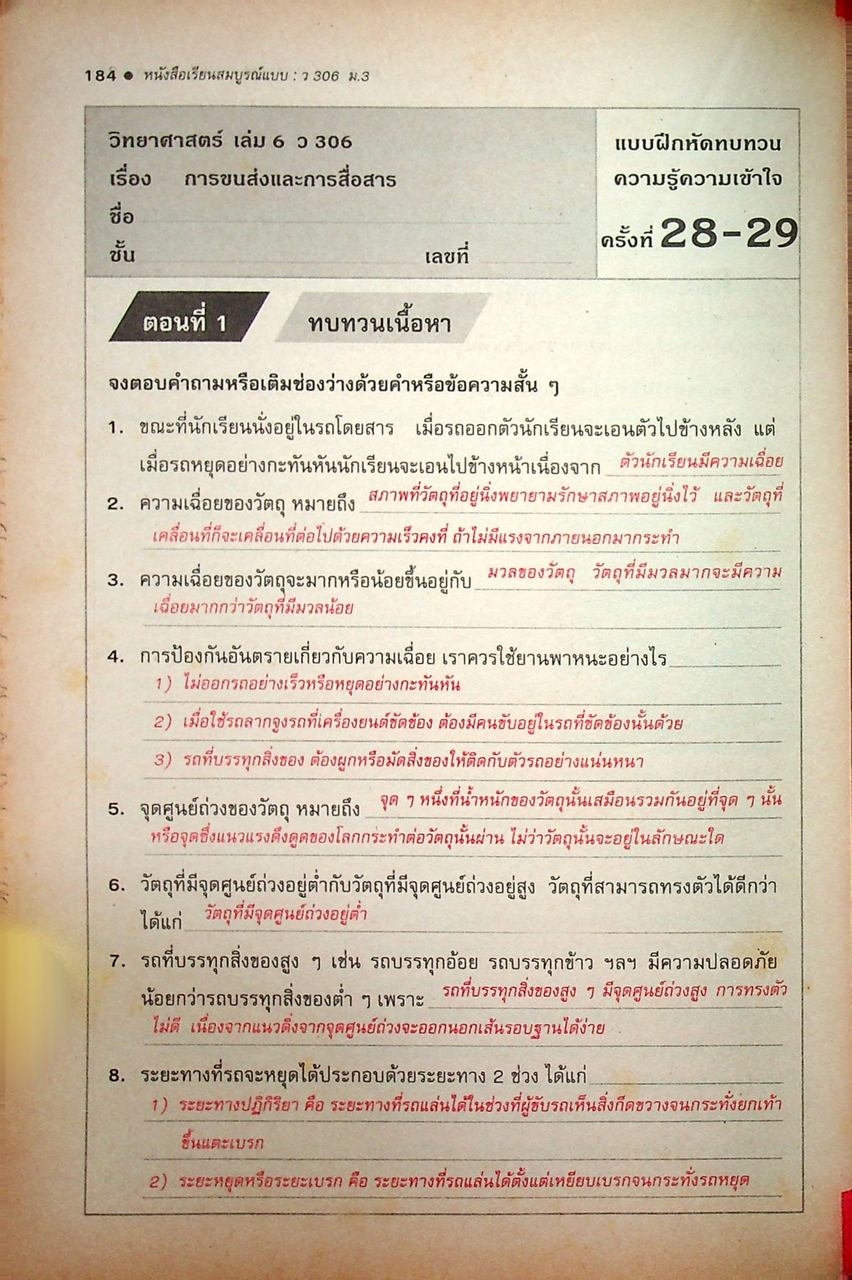 184 ● หนังสือเรียนสมบูรณ์แบบ : ว 306 ม.3
วิทยาศาสตร์ เล่ม 6 ว 306
เรื่อง การขนส่งและการสื่อสาร
ชื่อ
ชั้น เลขที่
แบบฝึกหัดทบทวน
ความรู้ความเข้าใจ
ครั้งที่ 28-29
ตอนที่ 1 ทบทวนเนื้อหา
จงตอบคำถามหรือเติมช่องว่างด้วยคำหรือข้อความสั้น ๆ
1. ขณะที่นักเรียนนั่งอยู่ในรถโดยสาร เมื่อรถออกตัวนักเรียนจะเอนตัวไปข้างหลัง แต่
เมื่อรถหยุดอย่างกะทันหันนักเรียนจะเอนไปข้างหน้าเนื่องจาก ตัวนักเรียนมีความเฉื่อย
2. ความเฉื่อยของวัตถุ หมายถึง สภาพที่วัตถุที่อยู่นิ่งพยายามรักษาสภาพอยู่นิ่งไว้ และวัตถุที่
เคลื่อนที่ก็จะเคลื่อนที่ต่อไปด้วยความเร็วคงที่ ถ้าไม่มีแรงจากภายนอกมากระทำ
3. ความเฉื่อยของวัตถุจะมากหรือน้อยขึ้นอยู่กับ มวลของวัตถุ วัตถุที่มีมวลมากจะมีความ
เฉื่อยมากกว่าวัตถุที่มีมวลน้อย
4. การป้องกันอันตรายเกี่ยวกับความเฉื่อย เราควรใช้ยานพาหนะอย่างไร
1) ไม่ออกรถอย่างเร็วหรือหยุดอย่างกะทันหัน
2) เมื่อใช้รถลากจูงรถที่เครื่องยนต์ขัดข้อง ต้องมีคนขับอยู่ในรถที่ขัดข้องนั้นด้วย
3) รถที่บรรทุกสิ่งของ ต้องผูกหรือมัดสิ่งของให้ติดกับตัวรถอย่างแน่นหนา
5. จุดศูนย์ถ่วงของวัตถุ หมายถึง จุด ๆ หนึ่งที่น้ำหนักของวัตถุนั้นเสมือนรวมกันอยู่ที่จุด ๆ นั้น
หรือจุดซึ่งแนวแรงดึงดูดของโลกกระทำต่อวัตถุนั้นผ่าน ไม่ว่าวัตถุนั้นจะอยู่ในลักษณะใด
6. วัตถุที่มีจุดศูนย์ถ่วงอยู่ต่ำกับวัตถุที่มีจุดศูนย์ถ่วงอยู่สูง วัตถุที่สามารถทรงตัวได้ดีกว่า
ได้แก่ วัตถุที่มีจุดศูนย์ถ่วงอยู่ต่ำ
7. รถที่บรรทุกสิ่งของสูง ๆ เช่น รถบรรทุกอ้อย รถบรรทุกข้าว ฯลฯ มีความปลอดภัย
น้อยกว่ารถบรรทุกสิ่งของต่ำ ๆ เพราะ รถที่บรรทุกสิ่งของสูง ๆ มีจุดศูนย์ถ่วงสูง การทรงตัว
ไม่ดี เนื่องจากแนวดิ่งจากจุดศูนย์ถ่วงจะออกนอกเส้นรอบฐานได้ง่าย
8. ระยะทางที่รถจะหยุดได้ประกอบด้วยระยะทาง 2 ช่วง ได้แก่
1) ระยะทางปฏิกิริยา คือ ระยะทางที่รถแล่นได้ในช่วงที่ผู้ขับรถเห็นสิ่งกีดขวางจนกระทั่งยกเท้า
ขึ้นแตะเบรก
2) ระยะหยุดหรือระยะเบรก คือ ระยะทางที่รถแล่นได้ตั้งแต่เหยียบเบรกจนกระทั่งรถหยุด